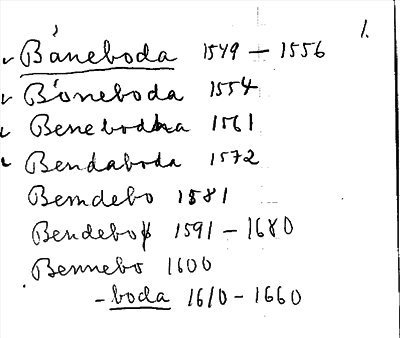 1.
Båneboda 1549 – 1556
Bòneboda 1554
Beneboda 1561
Bendaboda 1572
Bemdebo 1581
Bendebo 1591 – 1680
Bennebo 1600
- boda 1610 – 1660